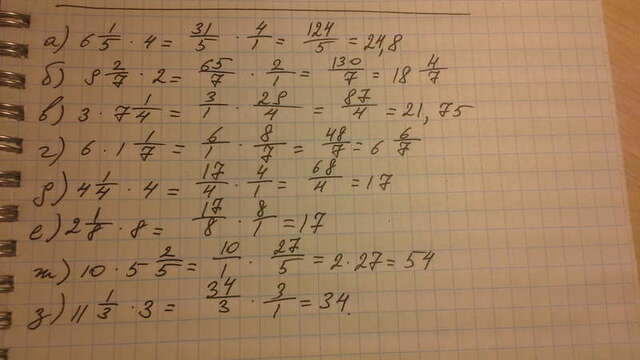 а) 6 1/5 · 4 = 31/5 · 4/1 = 124/5 = 24,8
б) 9 2/7 · 2 = 65/7 · 2/1 = 130/7 = 18 4/7
в) 3 · 7 1/4 = 3/1 · 29/4 = 87/4 = 21,75
г) 6 · 1 1/7 = 6/1 · 8/7 = 48/7 = 6 6/7
д) 4 1/4 · 4 = 17/4 · 4/1 = 68/4 = 17
е) 2 1/8 · 8 = 17/8 · 8/1 = 17
ж) 10 · 5 2/5 = 10/1 · 27/5 = 2 · 27 = 54
з) 11 1/3 · 3 = 34/3 · 3/1 = 34.